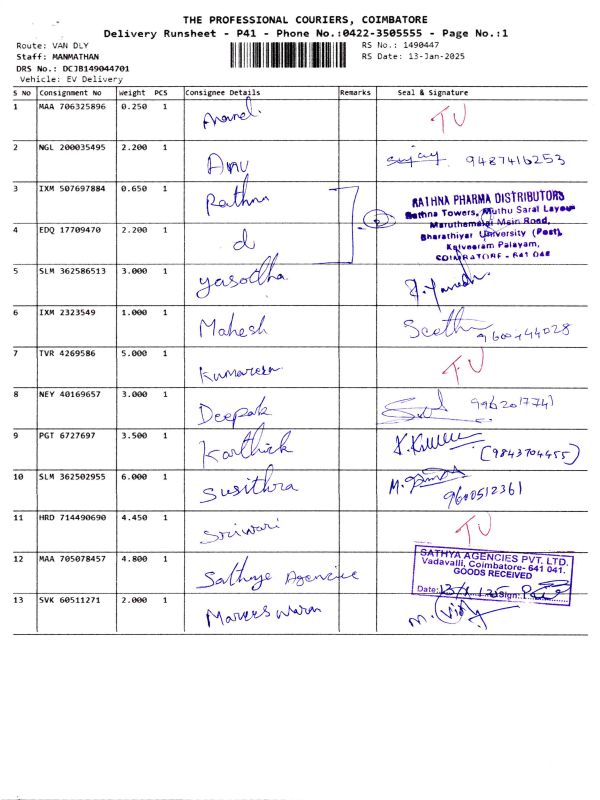 THE PROFESSIONAL COURIERS, COIMBATORE
Delivery Runsheet - P41 - Phone No.:0422-3505555 - Page No.:1
Route: VAN DLY
RS No.: 1490447
Staff: MANMATHAN
RS Date: 13-Jan-2025
DRS No.: DCJB149044701
Vehicle: EV Delivery
S No Consignment No Weight PCS Consignee Details Remarks Seal & Signature
1 MAA 706325896 0.250 1 Anand. TU
2 NGL 200035495 2.200 1 Anu Sujay 9487416253
3 IXM 507697884 0.650 1 Rathna
RATHNA PHARMA DISTRIBUTORS
Rathna Towers, Muthu Saral Layout
Maruthamalai Main Road,
4 EDQ 17709470 2.200 1 d 2
Bharathiyar University (Post),
Kalveeram Palayam,
COIMBATORE - 641 046
5 SLM 362586513 3.000 1 Yasodha
6 IXM 2323549 1.000 1 Mahesh
7 TVR 4269586 5.000 1 Kumaresn TU
8 NEY 40169657 3.000 1 Deepak 9962017741
9 PGT 6727697 3.500 1 Karthick (9843704455)
10 SLM 362502955 6.000 1 Susithra 9600512361
11 HRD 714490690 4.450 1 Sriwari TU
12 MAA 705078457 4.800 1 Sathya Agencies
SATHYA AGENCIES PVT. LTD.
Vadavalli, Coimbatore- 641 041.
GOODS RECEIVED
Date: 13/1/25 Sign:
13 SVK 60511271 2.000 1 Mareeswaran